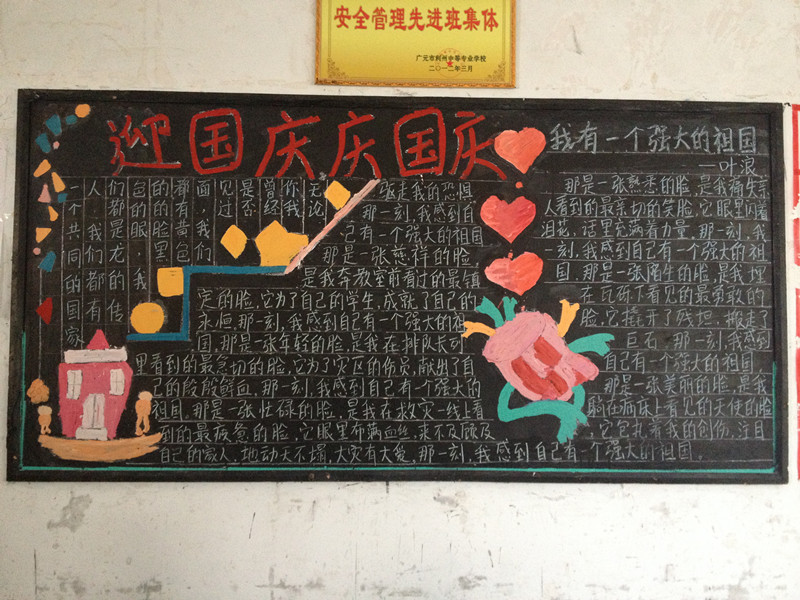 安全管理先进班集体
广元市利州中等专业学校
二〇一二年三月
迎国庆庆国庆
无论
你我
曾经
是否
见过
面,我们
都有黄色
的的脸黑
色的眼,我
们都是龙的传
人,我们都有
一个共同的国家
我有一个强大的祖国
——叶浪
那是一张熟悉的脸,是我痛失亲
人看到的最亲切的笑脸,它眼里闪着
泪花,话里充满着力量,那一刻,我
一刻,我感到自己有一个强大的祖
国,那是一张陌生的脸,是我埋
在瓦砾下看见的最勇敢的
脸,它撬开了残垣,搬走了
巨石,那一刻,我感到
自己有一个强大的祖国
那是一张美丽的脸,是我
躺在病床上看见的天使的脸
,它包扎着我的创伤,注目
驱走我的恐惧
那一刻,我感到自
己有一个强大的祖国
那是一张慈祥的脸
是我奔教室前看过的最镇
定的脸,它为了自己的学生,成就了自己的
永恒,那一刻,我感到自己有一个强大的祖
国,那是一张年轻的脸,是我在排队长列
里看到的最急切的脸,它为了灾区的伤员,献出了自
己的殷殷鲜血,那一刻,我感到自己有一个强大的
祖国,那是一张忙碌的脸,是我在救灾一线上看
到的最疲惫的脸,它眼里布满血丝,来不及顾及
自己的家人,地动天不塌,大灾有大爱,那一刻,我感到自己有一个强大的祖国.